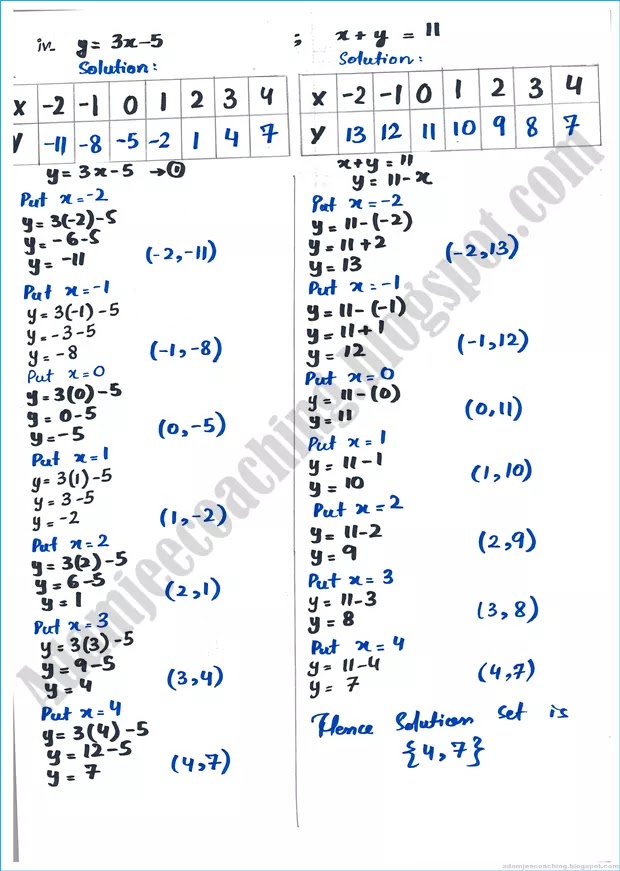 iv- y = 3x-5 ; x + y = 11
Solution:
X -2 -1 0 1 2 3 4
Y -11 -8 -5 -2 1 4 7
y = 3x-5 →①
Put x = -2
y = 3(-2)-5
y = -6-5
y = -11 (-2,-11)
Put x = -1
y = 3(-1)-5
y = -3-5
y = -8 (-1,-8)
Put x = 0
y = 3(0)-5
y = 0-5
y = -5 (0,-5)
Put x = 1
y = 3(1)-5
y = 3-5
y = -2 (1,-2)
Put x = 2
y = 3(2)-5
y = 6-5
y = 1 (2,1)
Put x = 3
y = 3(3)-5
y = 9-5
y = 4 (3,4)
Put x = 4
y = 3(4)-5
y = 12-5
y = 7 (4,7)
Solution:
X -2 -1 0 1 2 3 4
Y 13 12 11 10 9 8 7
x+y = 11
y = 11-x
Put x = -2
y = 11-(-2)
y = 11+2
y = 13 (-2,13)
Put x = -1
y = 11-(-1)
y = 11+1
y = 12 (-1,12)
Put x = 0
y = 11-(0)
y = 11 (0,11)
Put x = 1
y = 11-1
y = 10 (1,10)
Put x = 2
y = 11-2
y = 9 (2,9)
Put x = 3
y = 11-3
y = 8 (3,8)
Put x = 4
y = 11-4
y = 7 (4,7)
Hence Solution set is
{4,7}
Adamjeecoaching.blogspot.com
adamjeecoaching.blogspot.com